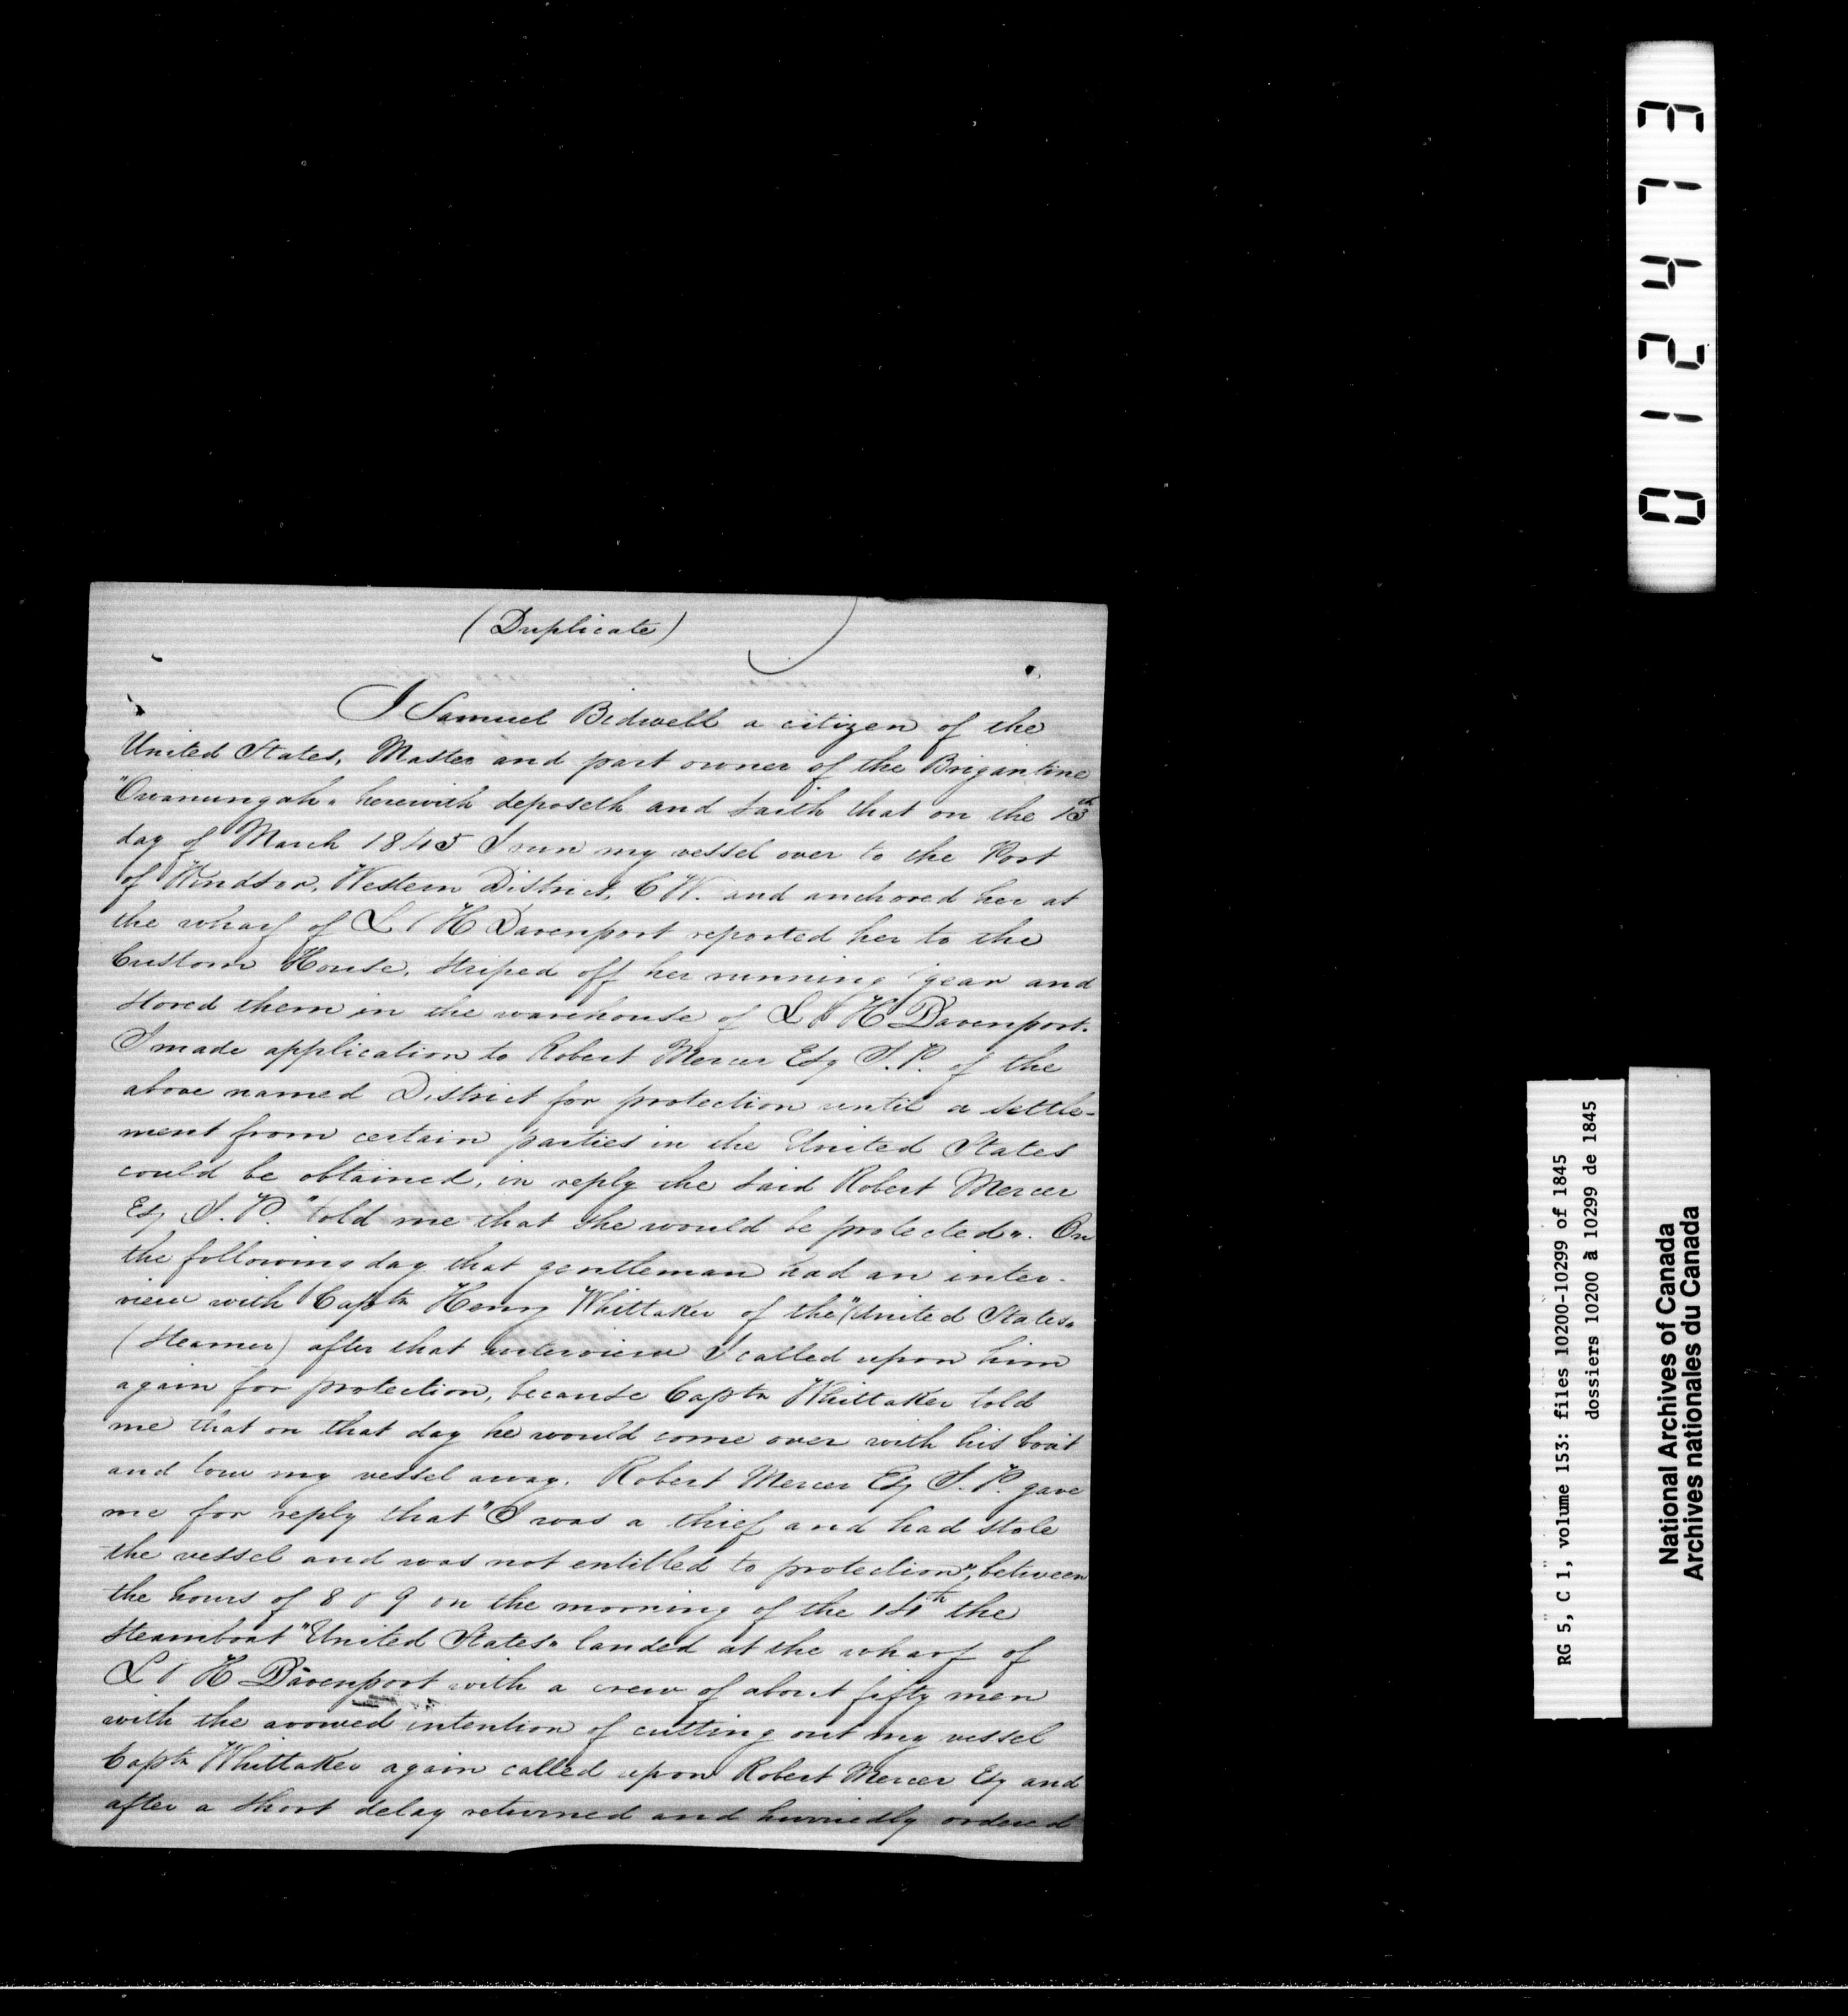 (Duplicate)
I Samuel Bidwell a citizen of the
United States, Master and part owner of the Brigantine
"Owanungah" herewith deposeth and saith that on the 13th
day of March 1845 I run my vessel over to the Port
of Windsor, Western District, C W. and anchored her at
the wharf of L & H Davenport reported her to the
Custom House, striped off her running gear and
stored them in the warehouse of L & H Davenport.
I made application to Robert Mercer Esq J. P. of the
above named District for protection until a settle-
ment from certain parties in the United States
could be obtained, in reply the said Robert Mercer
Esq J. P. "told me that she would be protected". On
the following day that gentleman had an inter-
view with Captn Henry Whittaker of the "United States"
(Steamer) after that interview I called upon him
again for protection, because Captn Whittaker told
me that on that day he would come over with his boat
and tow my vessel away. Robert Mercer Esq J. P. gave
me for reply that "I was a thief and had stole
the vessel and was not entitled to protection", between
the hours of 8 & 9 on the morning of the 14th the
Steamboat "United States" landed at the wharf of
L & H Davenport with a crew of about fifty men
with the avowed intention of cutting out my vessel
Captn Whittaker again called upon Robert Mercer Esq and
after a short delay returned and hurriedly ordered
012473
RG 5, C 1, volume 153: files 10200-10299 of 1845
dossiers 10200 à 10299 de 1845
National Archives of Canada
Archives nationales du Canada